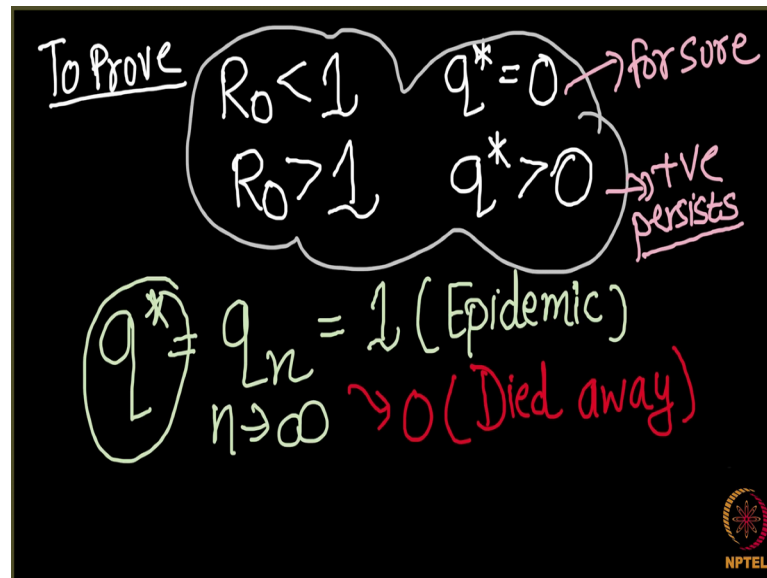 To Prove
R₀<1 q*=0 →for sure
R₀>1 q*>0 →+ve
persists
q* = qₙ = 1 (Epidemic)
n→∞ ↘0 (Died away)
NPTEL